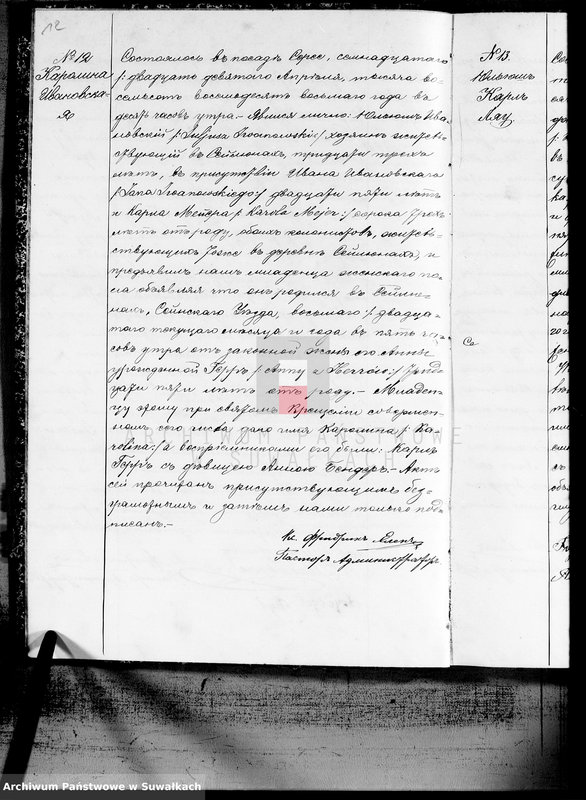 12
№ 12
Каролина
Ивановска-
я
Состоялось въ посадѣ Сереѣ, семнадцатаго
/: двадцать девятаго Апрѣля, тысяча во-
семьсотъ восемьдесятъ восьмаго года въ
десять часовъ утра.- Явился лично: Юльюшъ Ива-
новскій /: Juljusz Iwanowski :/ хозяинъ жительс-
твующій въ Сейлюнахъ, тридцати трехъ
лѣтъ, въ присутствіи Ивана Ивановскаго
/: Jana Iwanowskiego :/ двадцати пяти лѣтъ
и Карла Мейера /: Karola Mejer :/ сорока трехъ
лѣтъ отъ роду, обоихъ колонистовъ, житель-
ствующихъ тоже въ деревнѣ Сейлюнахъ, и
предъявилъ намъ младенца женскаго по-
ла объявляя что онъ родился въ Сейлю-
нахъ, Сейнскаго Уѣзда, восьмаго /: двадца-
таго текущаго мѣсяца и года въ пять ча-
совъ утра отъ законной жены его Анны
урожденной Герръ /: Anny z Herrów :/
цати пяти лѣтъ отъ роду.- Младен-
цу этому при святомъ Крещеніи совершен-
номъ сего числа дано имя Каролина /: Ka-
rolina :/ а воспріемниками его были: Карлъ
Герръ съ дѣвицею Анною Бендеръ.- Актъ
сей прочитанъ присутствующимъ без-
грамотнымъ и затѣмъ нами только под-
писанъ.-
Кс. Фридрихъ
Пасторъ Администраторъ
№ 13.
Юльюшъ
Карлъ
Ляу
Со
ARCHIWUM PAŃSTWOWE
SUWAŁKACH
Archiwum Państwowe w Suwałkach